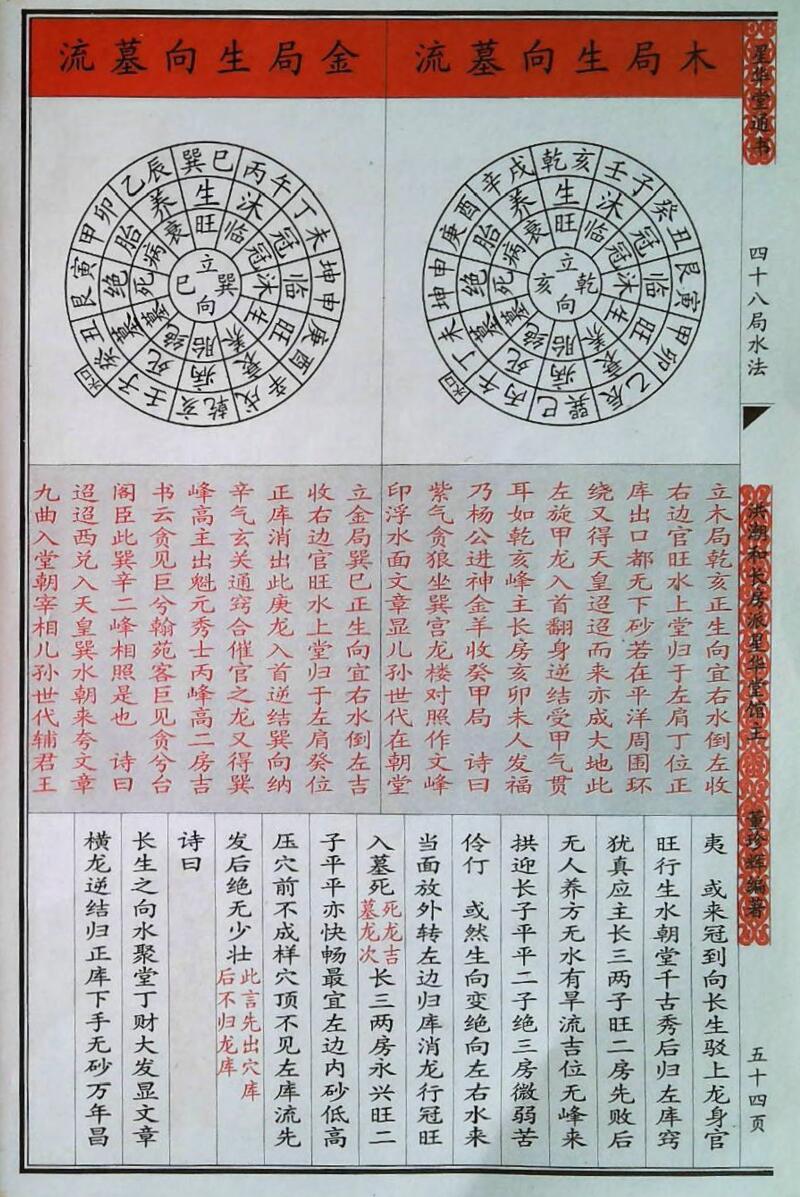 星华堂通书
四十八局水法
洪潮和长房派星华堂馆主
董珍辉编著
五十四页
木局生向墓流
乾亥
壬子
癸丑
艮寅
甲卯
乙辰
巽巳
丙午
丁未
坤申
庚酉
辛戌
生
沐
冠
临
旺
衰
病
死
墓
绝
胎
养
旺
临
冠
沐
生
养
胎
绝
墓
死
病
衰
立
乾
向
亥
立木局乾亥正生向宜右水倒左收
右边官旺水上堂归于左肩丁位正
库出口都无下砂若在平洋周围环
绕又得天皇迢迢而来亦成大地此
左旋甲龙入首翻身逆结受甲气贯
耳如乾亥峰主长房亥卯未人发福
乃杨公进神金羊收癸甲局 诗曰
紫气贪狼坐巽宫龙楼对照作文峰
印浮水面文章显儿孙世代在朝堂
金局生向墓流
巽巳
丙午
丁未
坤申
庚酉
辛戌
乾亥
壬子
癸丑
艮寅
甲卯
乙辰
生
沐
冠
临
旺
衰
病
死
墓
绝
胎
养
旺
临
冠
沐
生
养
胎
绝
墓
死
病
衰
立
巽
向
巳
立金局巽巳正生向宜右水倒左吉
收右边官旺水上堂归于左肩癸位
正库消出此庚龙入首逆结巽向纳
辛气玄关通窍合催官之龙又得巽
峰高主出魁元秀士丙峰高二房吉
书云贪见巨兮翰苑客巨见贪兮台
阁臣此巽辛二峰相照是也 诗曰
迢迢西兑入天皇巽水朝来夸文章
九曲入堂朝宰相儿孙世代辅君王
夷 或来冠到向长生驳上龙身官
旺行生水朝堂千古秀后归左库窍
犹真应主长三两子旺二房先败后
无人养方无水有旱流吉位无峰来
拱迎长子平平二子绝三房微弱苦
伶仃 或然生向变绝向左右水来
当面放外转左边归库消龙行冠旺
入墓死死龙吉墓龙次长三两房永兴旺二
子平平亦快畅最宜左边内砂低高
压穴前不成样穴顶不见左库流先
发后绝无少壮此言先出穴库后不归龙库
诗曰
长生之向水聚堂丁财大发显文章
横龙逆结归正库下手无砂万年昌